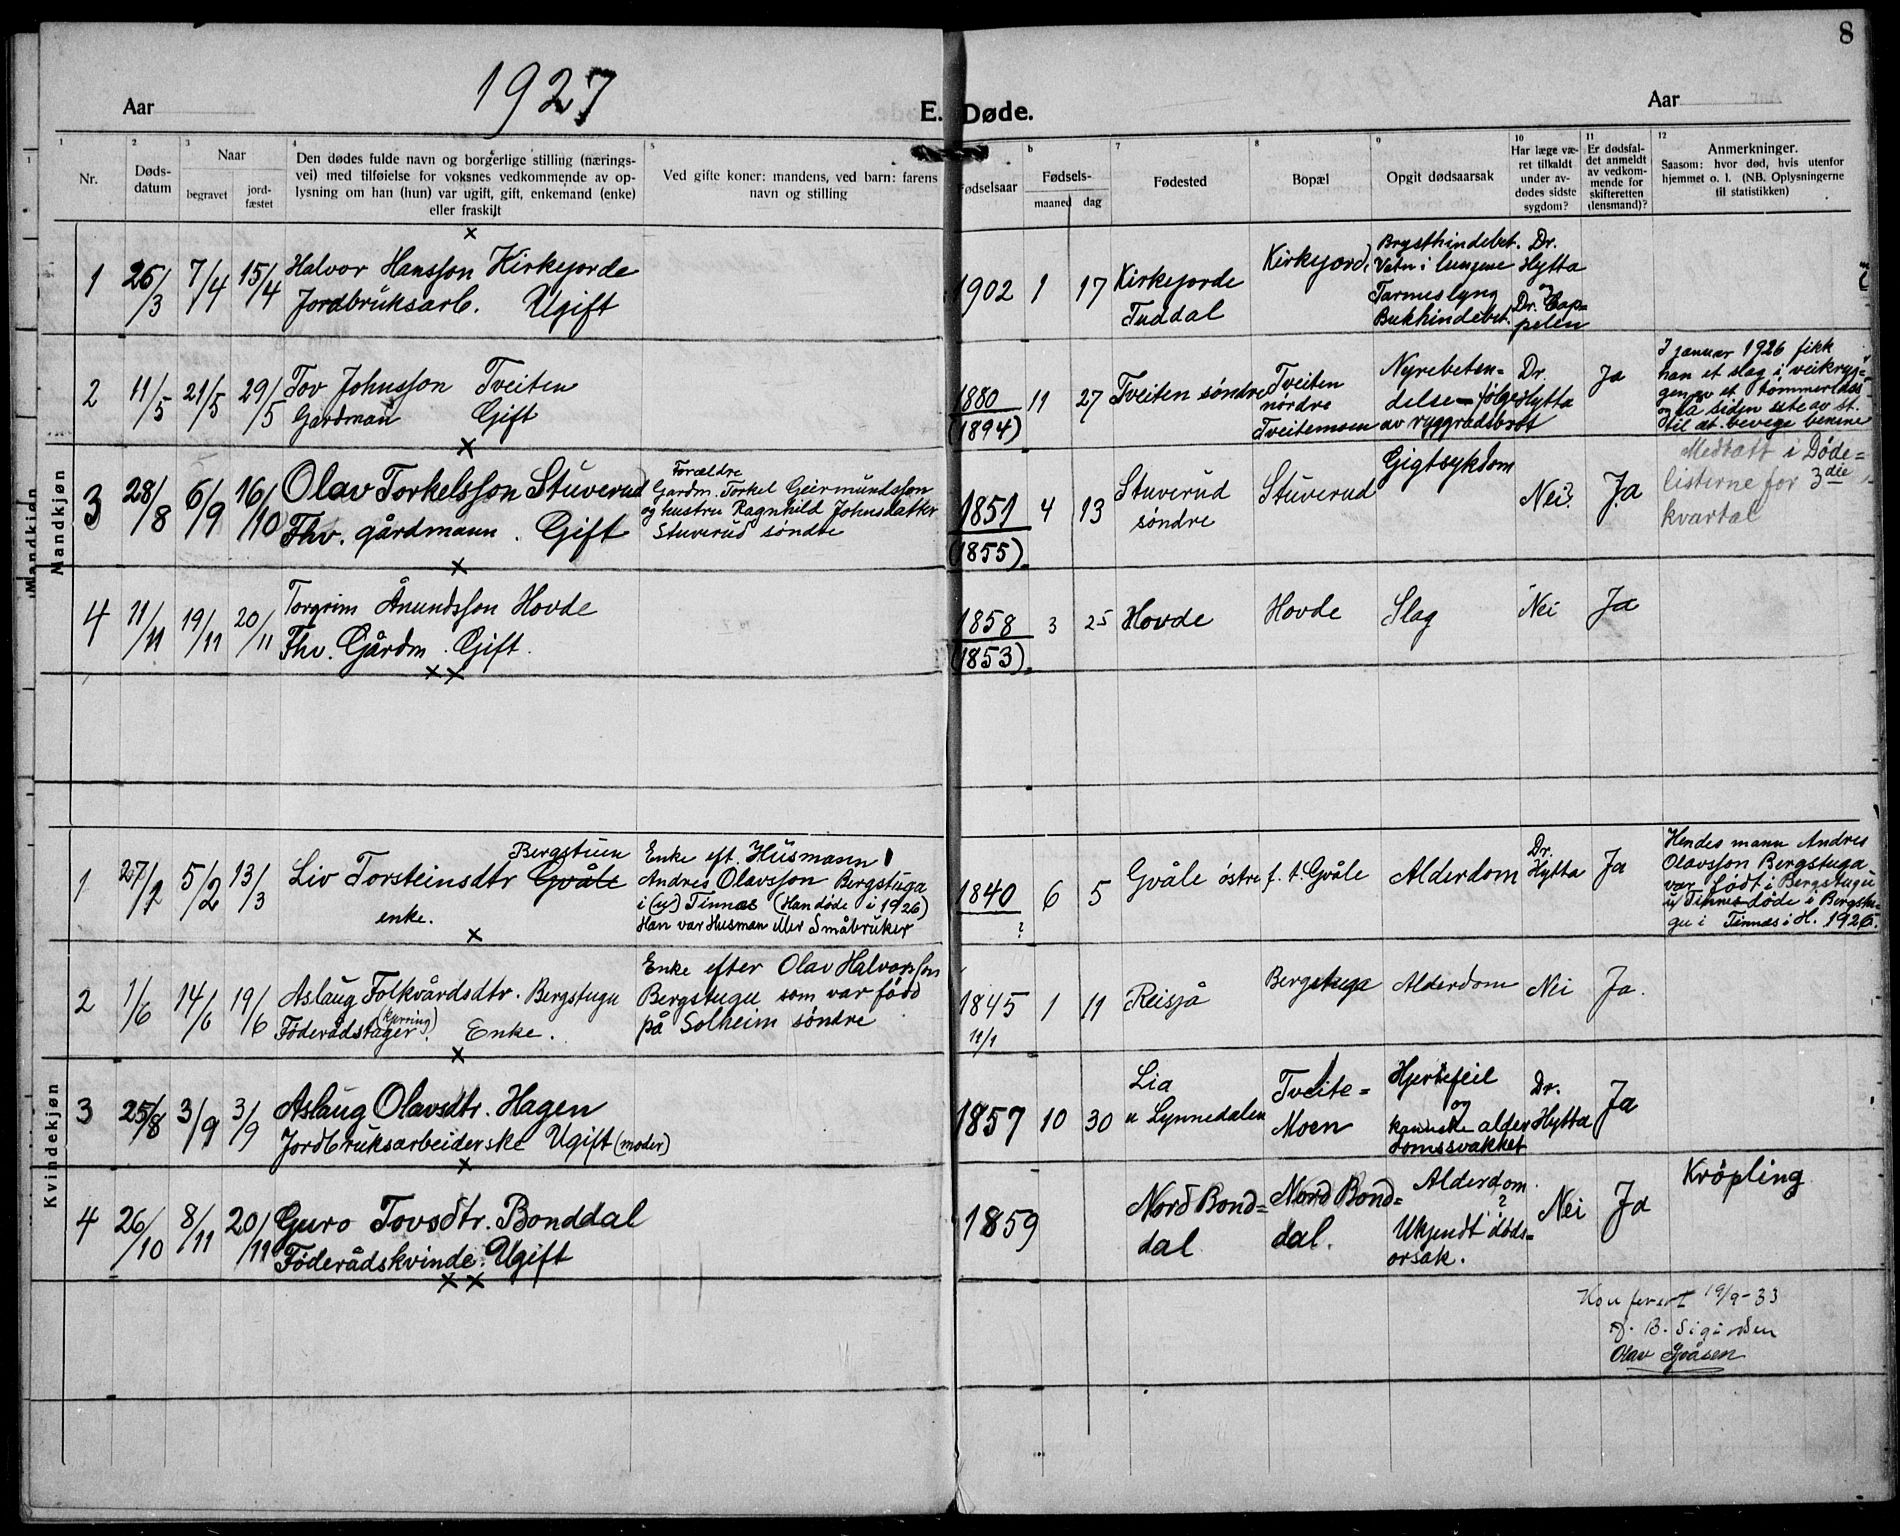 8
1927
Aar
E. Døde.
Aar
1
2
3
4
5
6
7
8
9
10
11
12
Nr.
Døds-
datum
Naar
begravet
jord-
fæstet
Den dødes fulde navn og borgerlige stilling (nærings-
vei) med tilføielse for voksnes vedkommende av op-
lysning om han (hun) var ugift, gift, enkemand (enke)
eller fraskilt
Ved gifte koner: mandens, ved barn: farens
navn og stilling
Fødselsaar
b
Fødsels-
maaned dag
Fødested
Bopæl
Opgit dødsaarsak
Har læge væ-
ret tilkaldt
under av-
dødes sidste
sygdom?
Er dødsfal-
det anmeldt
av vedkom-
mende for
skifteretten
(lensmand)?
Anmerkninger.
Saasom: hvor død, hvis utenfor
hjemmet o. l. (NB. Oplysningerne
til statistikken)
Mandkjøn
1
26/3
7/4
15/4
Halvor Hansson Kirkejorde
Jordbruksarb. Ugift
1902
1
17
Kirkejorde
Tuddal
Kirkejord
Brysthindebet.
Vatn i lungene
Tarmeslyng
Bukhindebet.
Dr.
Hytta
Dr. Cap-
pelen
2
11/5
21/5
29/5
Tov Johnsson Tveiten
Gardman Gift
1880
(1894)
11
27
Tveiten søndre
Tveiten
nørdre
Tveitemoen
Nyrebeten-
delse – følge
av ryggradsbrot
Dr
Hytta
Ja
I januar 1926 fikk
han et slag i veikryg-
gen av et tømmerlass
og la siden ute av st.
til at bevege benene
3
28/8
6/9
16/10
Olav Torkelsson Stuverud
Fhv. gårdmann. Gift
Forældre
Gardm. Torkel Geirmundsson
og hustru Ragnhild Johnsdatter
Stuverud søndre
1851
(1855)
4
13
Stuverud
søndre
Stuverud
Gigtsykdom
Nei?
Ja
Medtatt i Døde=
listerne for 3die
kvartal
4
11/11
19/11
20/11
Torgrim Ånundsson Hovde
Fhv. Gårdm. Gift.
1858
(1853)
3
25
Hovde
Hovde
Slag
Nei
Ja
Kvindekjøn
1
27/2
5/2
13/3
Bergstuen
Liv Torsteinsdtr Gvåle
enke.
Enke eft. Husmann
Andres Olavsson Bergstuga
i (u) Tinnæs (Han døde i 1926)
Han var Husman eller Småbruker
1840
?
6
5
Gvåle østre
f. t. Gvåle
Alderdom
Dr.
Hytta
Ja
Hendes mann Andres
Olavsson Bergstuga
var født i Bergstugu
u/ Tinnes døde i Bergstu-
gu i Tinnæs i H. 1926.
2
1/6
14/6
19/6
Aslaug Folkvårdsdtr. Bergstugu
Føderådstager. (kjerring) Enke.
Enke efter Olav Halvorsson
Bergstugu som var født
på Solheim søndre
1845
11/1
1
11
Reisjå
Bergstuga
Alderdom
Nei
Ja.
3
25/8
3/9
3/9
Aslaug Olavsdtr. Hagen
Jordbruksarbeiderske Ugift (moder)
1857
10
30
Lia
u Lynnedalen
Tveite=
Moen
Hjertefeil
og
kanske alder
domssvakket
Dr.
Hytta
Ja
4
26/10
8/11
20/11
Guro Tovsdtr. Bonddal
Føderådskvinde. Ugift
1859
Nord Bond=
dal
Nord Bond=
dal.
Alderdom.
?
Ukjendt døds=
orsak.
Nei
Ja
Krøpling
Konferert 19/9-33
B. Sigurdsen
Olav Gvåsen